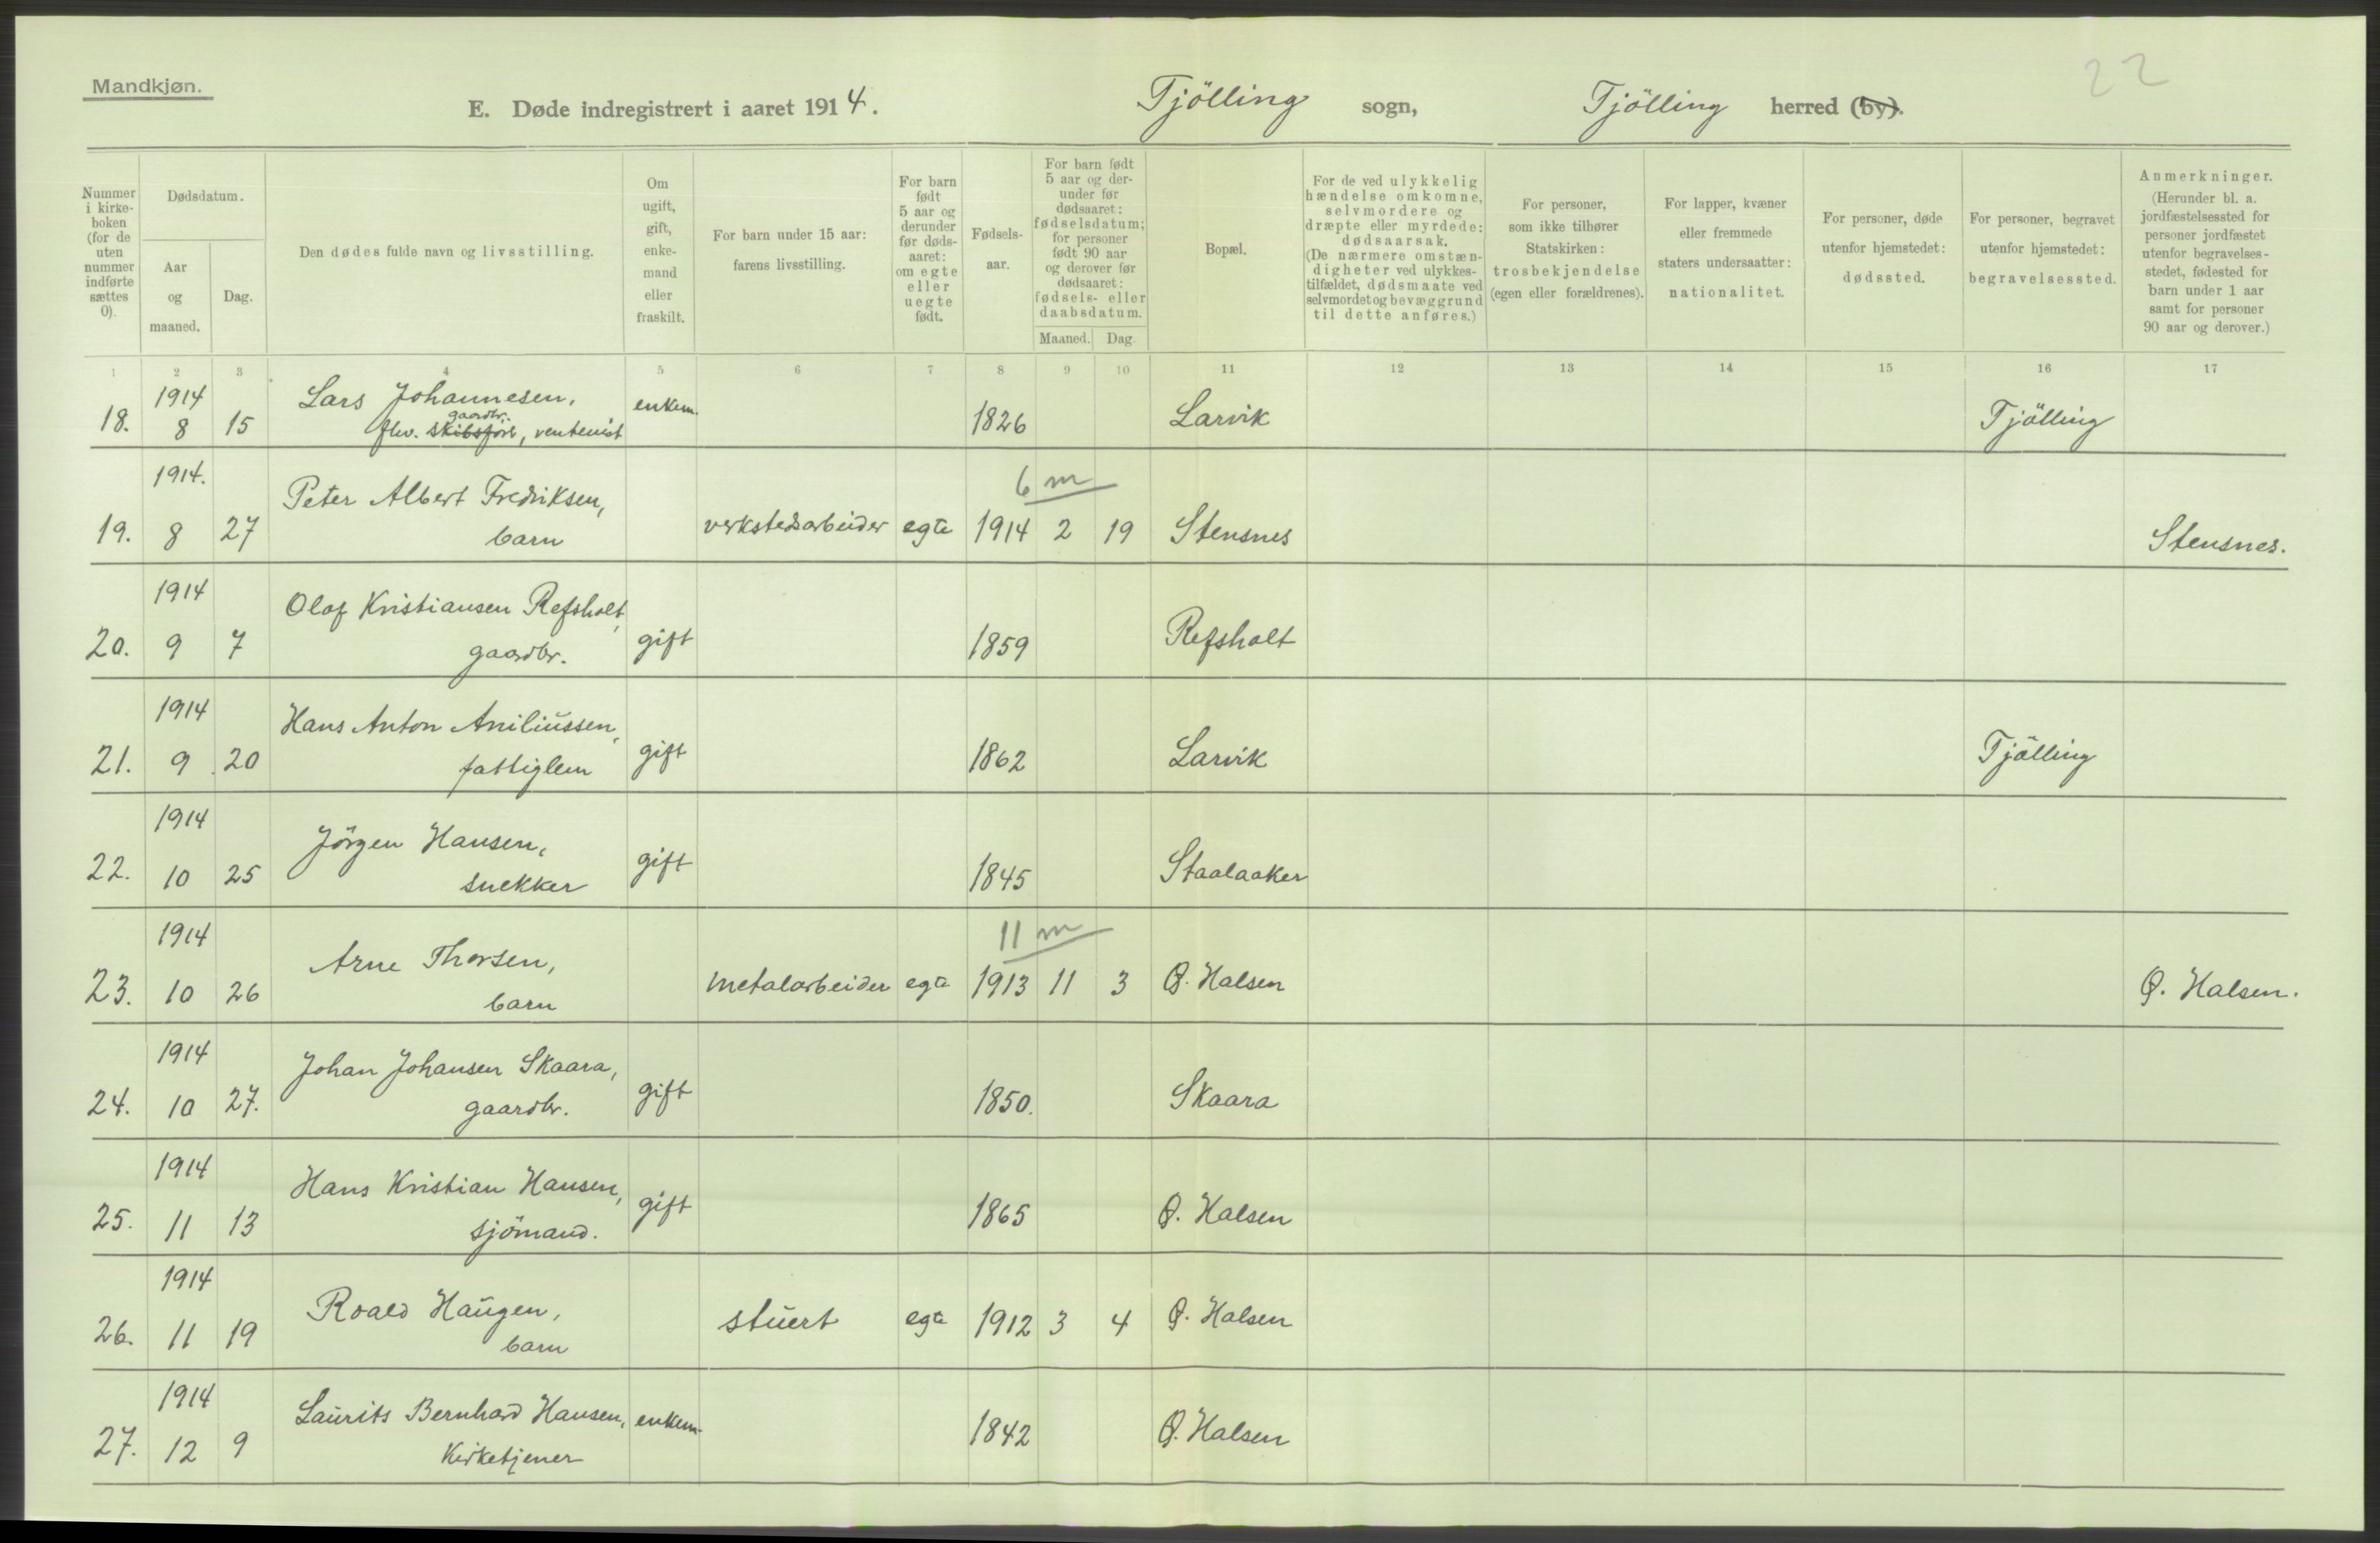 Mandkjøn.
22
E. Døde indregistrert i aaret 1914. Tjölling sogn, Tjölling herred (by).
Nummer i kirke-boken (for de uten nummer indførte sættes 0).
Dødsdatum.
Aar og maaned.
Dag.
Den dødes fulde navn og livsstilling.
Om ugift, gift, enke-mand eller fraskilt.
For barn under 15 aar: farens livsstilling.
For barn født 5 aar og derunder før døds-aaret: om egte eller uegte født.
Fødsels-aar.
For barn født 5 aar og der-under før dødsaaret: fødselsdatum; for personer født 90 aar og derover før dødsaaret: fødsels- eller daabsdatum.
Maaned. Dag.
Bopæl.
For de ved ulykkelig hændelse omkomne, selvmordere og dræpte eller myrdede: dødsaarsak. (De nærmere omstæn-digheter ved ulykkes-tilfældet, dødsmaate ved selvmordet og bevæggrund til dette anføres.)
For personer, som ikke tilhører Statskirken: trosbekjendelse (egen eller forældrenes).
For lapper, kvæner eller fremmede staters undersaatter: nationalitet.
For personer, døde utenfor hjemstedet: dødssted.
For personer, begravet utenfor hjemstedet: begravelsessted.
Anmerkninger. (Herunder bl. a. jordfæstelsessted for personer jordfæstet utenfor begravelses-stedet, fødested for barn under 1 aar samt for personer 90 aar og derover.)
1 2 3 4 5 6 7 8 9 10 11 12 13 14 15 16 17
1914 Lars Johannesen, enkem.
gaardbr.
18. 8 15 flw. skibsför, rentenist 1826 Larvik Tjölling
1914. Peter Albert Fredriksen, 6 m
19. 8 27 barn verkstedsarbeider egte 1914 2 19 Stensnes Stensnes.
1914 Olaf Kristiansen Refsholt,
20. 9 7 gaardbr. gift 1859 Refsholt
1914 Hans Anton Aniliussen,
21. 9 20 fattiglem gift 1862 Larvik Tjölling
1914 Jörgen Hansen,
22. 10 25 snekker gift 1845 Staalaaker
1914 Arne Thorsen, 11 m
23. 10 26 barn metalarbeider egte 1913 11 3 Ø. Halsen Ø. Halsen.
1914 Johan Johansen Skaara,
24. 10 27. gaardbr. gift 1850. Skaara
1914 Hans Kristian Hansen,
25. 11 13 sjömand. gift 1865 Ø. Halsen
1914 Roald Haugen,
26. 11 19 barn stuert egte 1912 3 4 Ø. Halsen
1914 Laurits Bernhard Hansen, enkem.
27. 12 9 Kirketjener 1842 Ø. Halsen